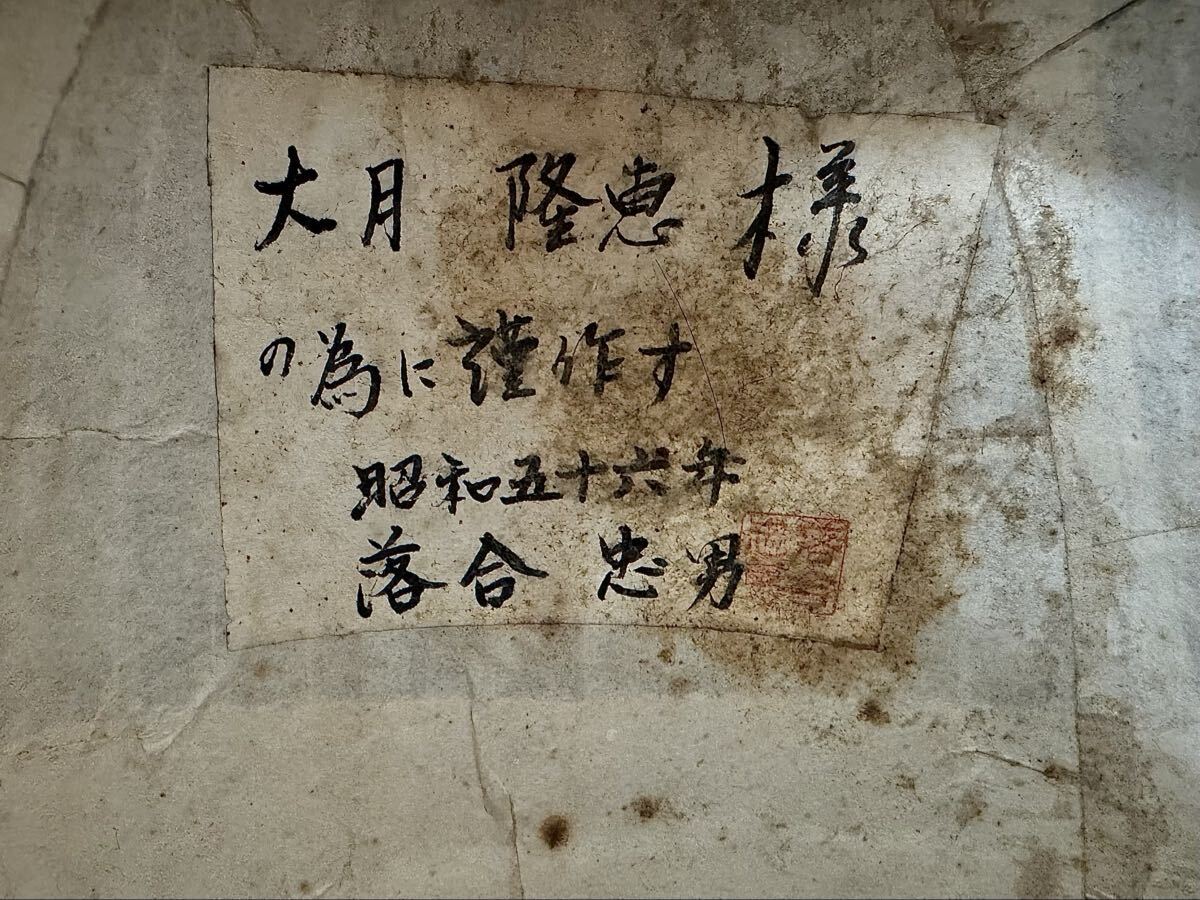 大月 隆恵 様
の為に謹作す
昭和五十六年
落合 忠男